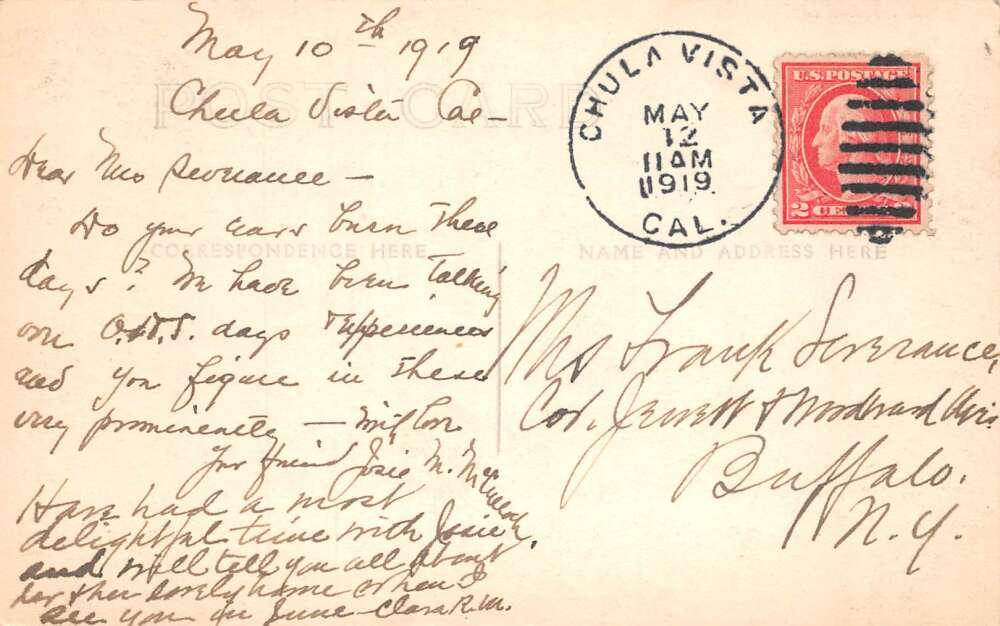 May 10th 1919
Chula Vista Cal-
POST CARD
Dear Mrs Severance -
Do your ears burn these
days? We have been talking
over O. & T.S. days & experiences
and you figure in these
very prominently - with love
Your friend Josie M. McCulloch
Have had a most
delightful time with Josie,
and will tell you all about
her & her lovely home when I
see you in June - Clara R.M.
CORRESPONDENCE HERE
CHULA VISTA
MAY
12
11 AM
1919
CAL.
U.S. POSTAGE
2 CENTS
NAME AND ADDRESS HERE
Mrs Frank Severance,
Cor. Jewett & Woodward Ave.
Buffalo.
N.Y.